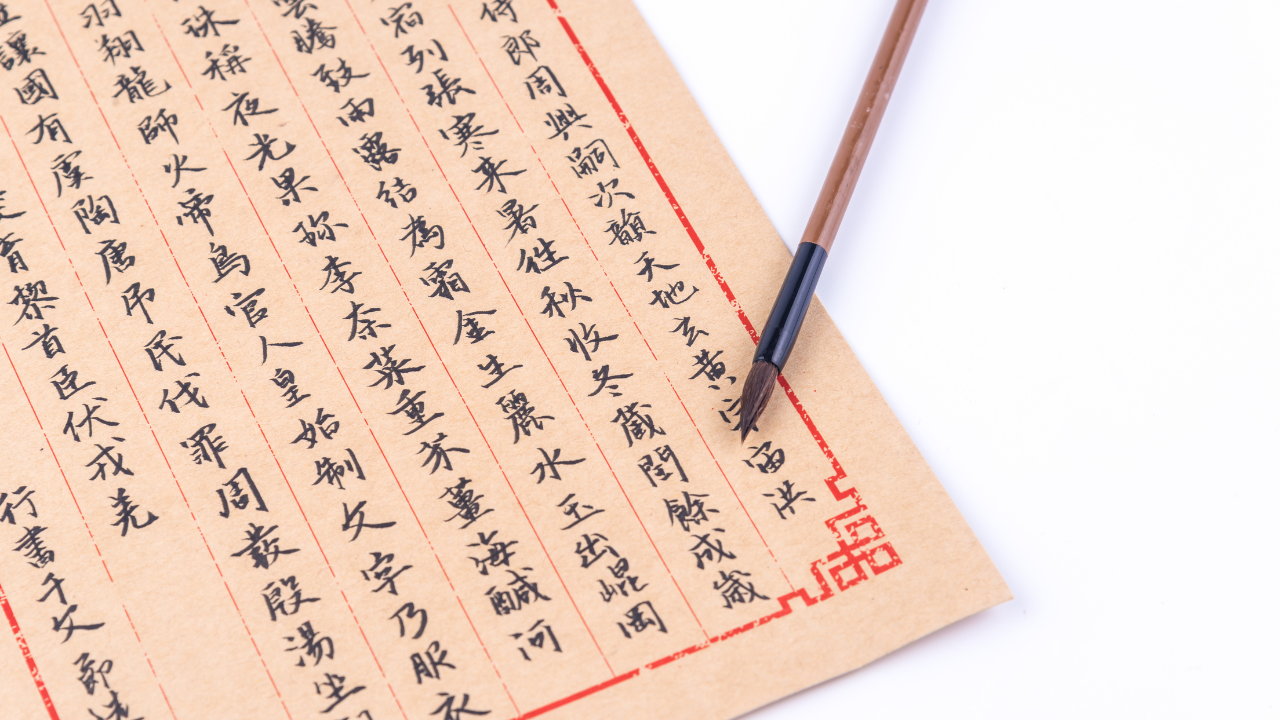 侍郎周興嗣次韻天地玄黃宇宙洪
宿列張寒来暑往秋收冬藏閏餘成歲
雲騰致雨露結為霜金生麗水玉出崐岡
珠稱夜光果珍李奈菜重芥薑海鹹河
羽翔龍師火帝鳥官人皇始制文字乃服衣
讓國有虞陶唐吊民伐罪周發殷湯坐
育黎首臣伏戎羌
行書千文節